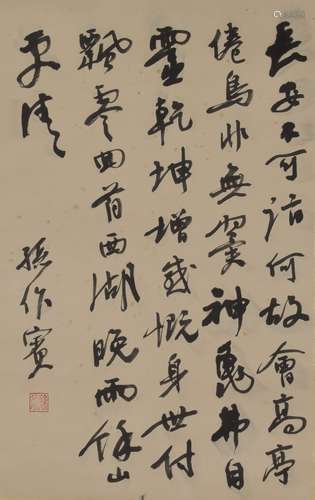 長安不可詰何故會高亭
倦鳥非無翼神龜弗自
靈乾坤增感慨身世付
飄零回首西湖晚雨餘山
更清
孫作賓